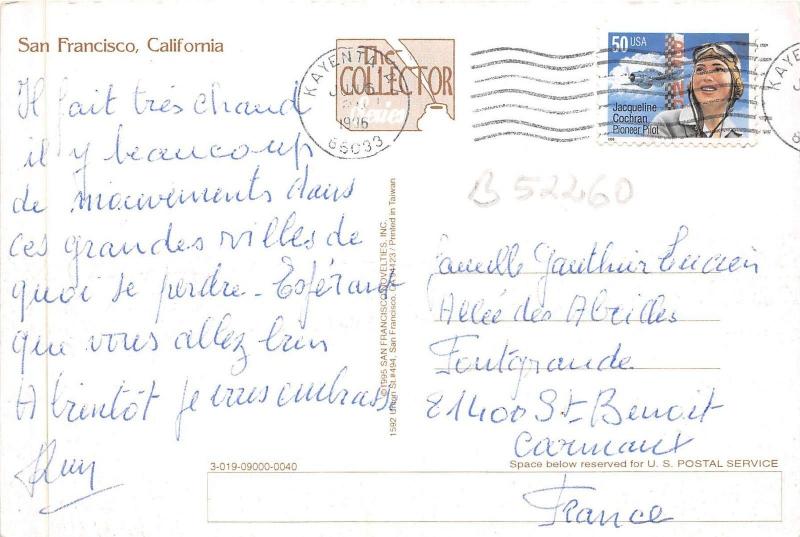 San Francisco, California
The
COLLECTOR
Series
KAYENTA, A
1996
86033
50 USA
Jacqueline
Cochran
Pioneer Pilot
KAYENT
Il fait très chaud
il y beaucoup
de mouvements dans
ces grandes villes de
quoi se perdre - Espérant
que vous allez bien
A bientôt je vous embrasse
B 52260
©1995 SAN FRANCISCO NOVELTIES, INC.
1592 Union St. #494, San Francisco, CA 94123 / Printed in Taiwan
Famille Gauthier Lucien
Allée des Abeilles
Fontgrande
81400 St Benoit
Carmaux
France
3-019-09000-0040
Space below reserved for U. S. POSTAL SERVICE